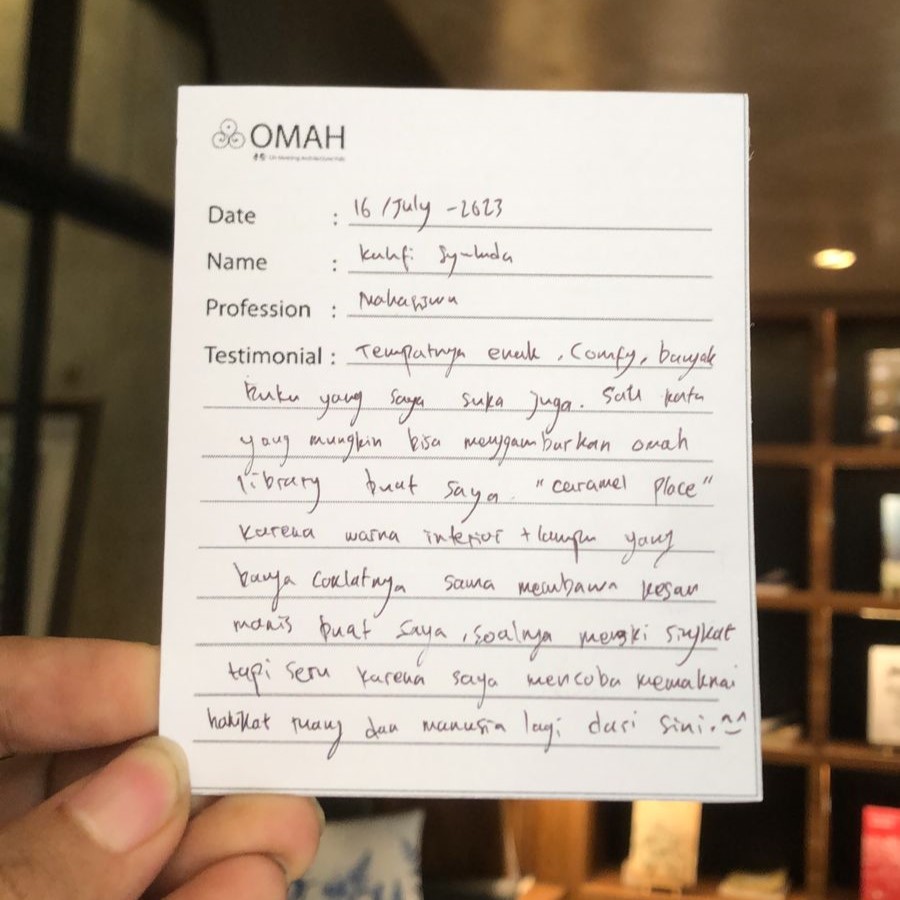 OMAH
Date : 16 / July - 2023
Name : Kahfi
Profession : Mahasiswa
Testimonial : Tempatnya enak, Comfy, banyak
buku yang saya suka juga. Satu kata
yang mungkin bisa menggambarkan omah
library buat saya "caramel place"
karena warna interior + lampu yang
banya coklatnya sama membawa kesan
manis buat saya, soalnya meski singkat
tapi seru karena saya mencoba memaknai
hakikat ruang dan manusia lagi dari sini. ^^